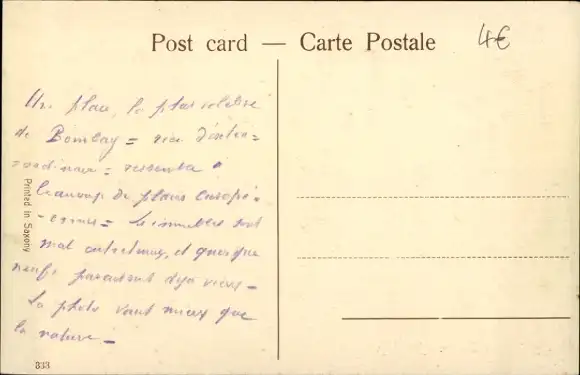 Post card — Carte Postale
4€
Une place, la plus célèbre
de Bombay = rien d'extra=
=ordinaire = ressemble à
beaucoup de places europée-
-ennes = les immeubles sont
mal entretenus, et quoique
neufs paraissent déjà vieux -
La photo vaut mieux que
la nature. -
Printed in Saxony
333